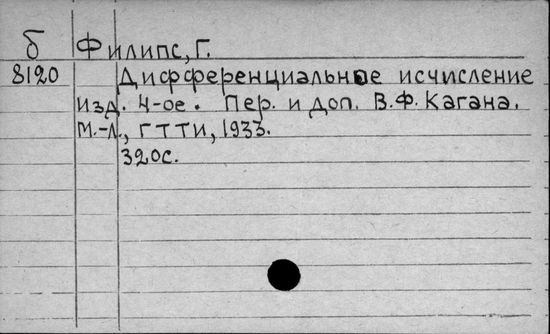 б Филипс, Г.
8120 Дифференциальное исчисление
изд. 4-ое. Пер. и доп. В.Ф. Кагана.
М.-Л., ГТТИ, 1933.
320с.